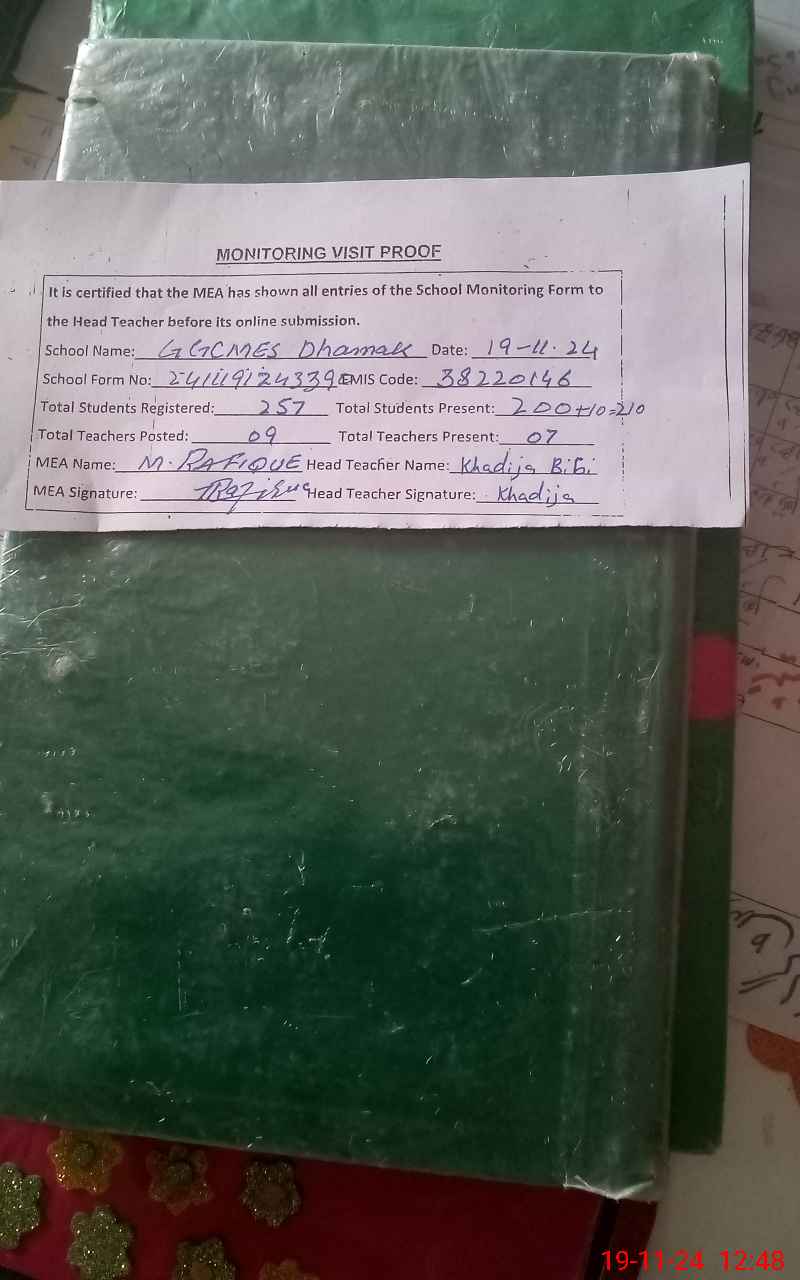 MONITORING VISIT PROOF
It is certified that the MEA has shown all entries of the School Monitoring Form to
the Head Teacher before its online submission.
School Name: GGCMES Dhamak Date: 19-11-24
School Form No: EMIS Code: 38220146
Total Students Registered: 257 Total Students Present: 200+10=210
Total Teachers Posted: 09 Total Teachers Present: 07
MEA Name: M. RAFIQUE Head Teacher Name: Khadija Bibi
MEA Signature: Rafique Head Teacher Signature: Khadija
19-11-24 12:48